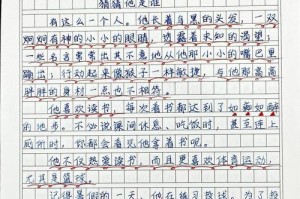 猜猜他是谁
有这么一个人。他长着乌黑的头发,一双
炯炯有神的小小的眼睛,透露着未知的渴望;
一些名言常常出其不意地从他那小小的嘴巴里
蹦出;行动起来像猴子一样敏捷,与他那高高
胖胖的身材一点也不相符。
他喜欢读书,每次看书都达到了如痴如醉
的地步。不必说课间休息、吃饭时,甚至连上
厕所时,你都会看见他拿着书呢。
他不仅热爱读书,而且更喜欢体育运动,
尤其是篮球。
记得暑假的一天,他在练习投球。为了投